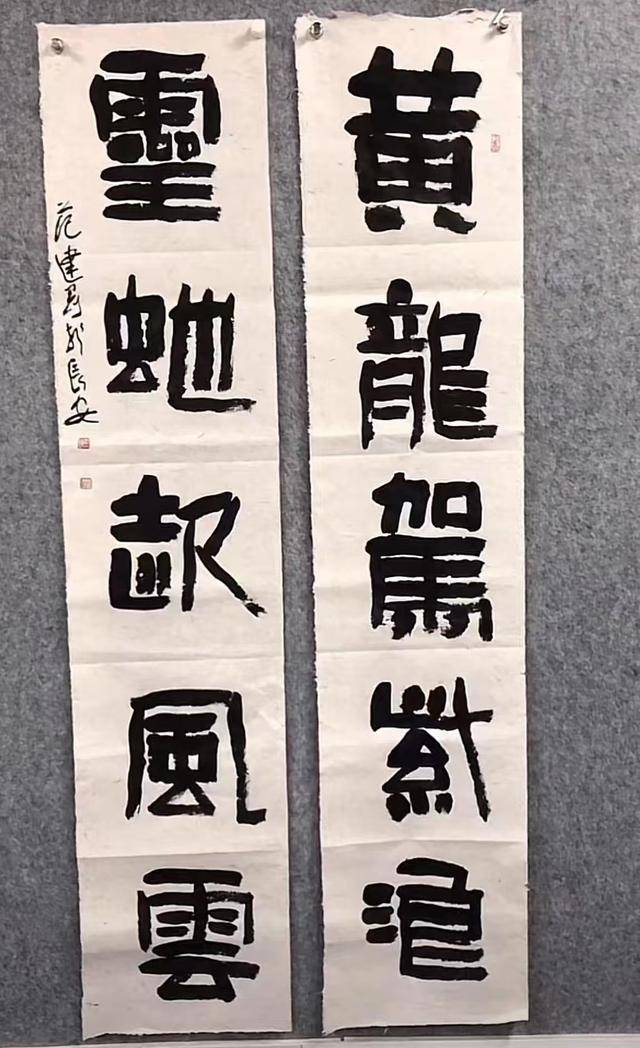 黄龍駕紫浪
靈虵起風雲
范建於長安